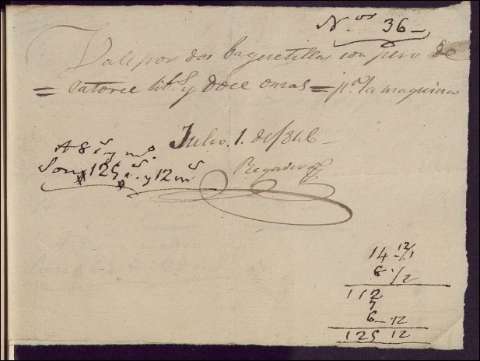 N.os 36
Vale por dos baquetillas con peso de
= catorce lb.s y doce onzas = p.a la maquina
Julio, 1. de 1846
A 8 r.s y m.o
Son 125 r.s y 12 m.s
14 12/
8 1/2
112
7
6 12
125 12